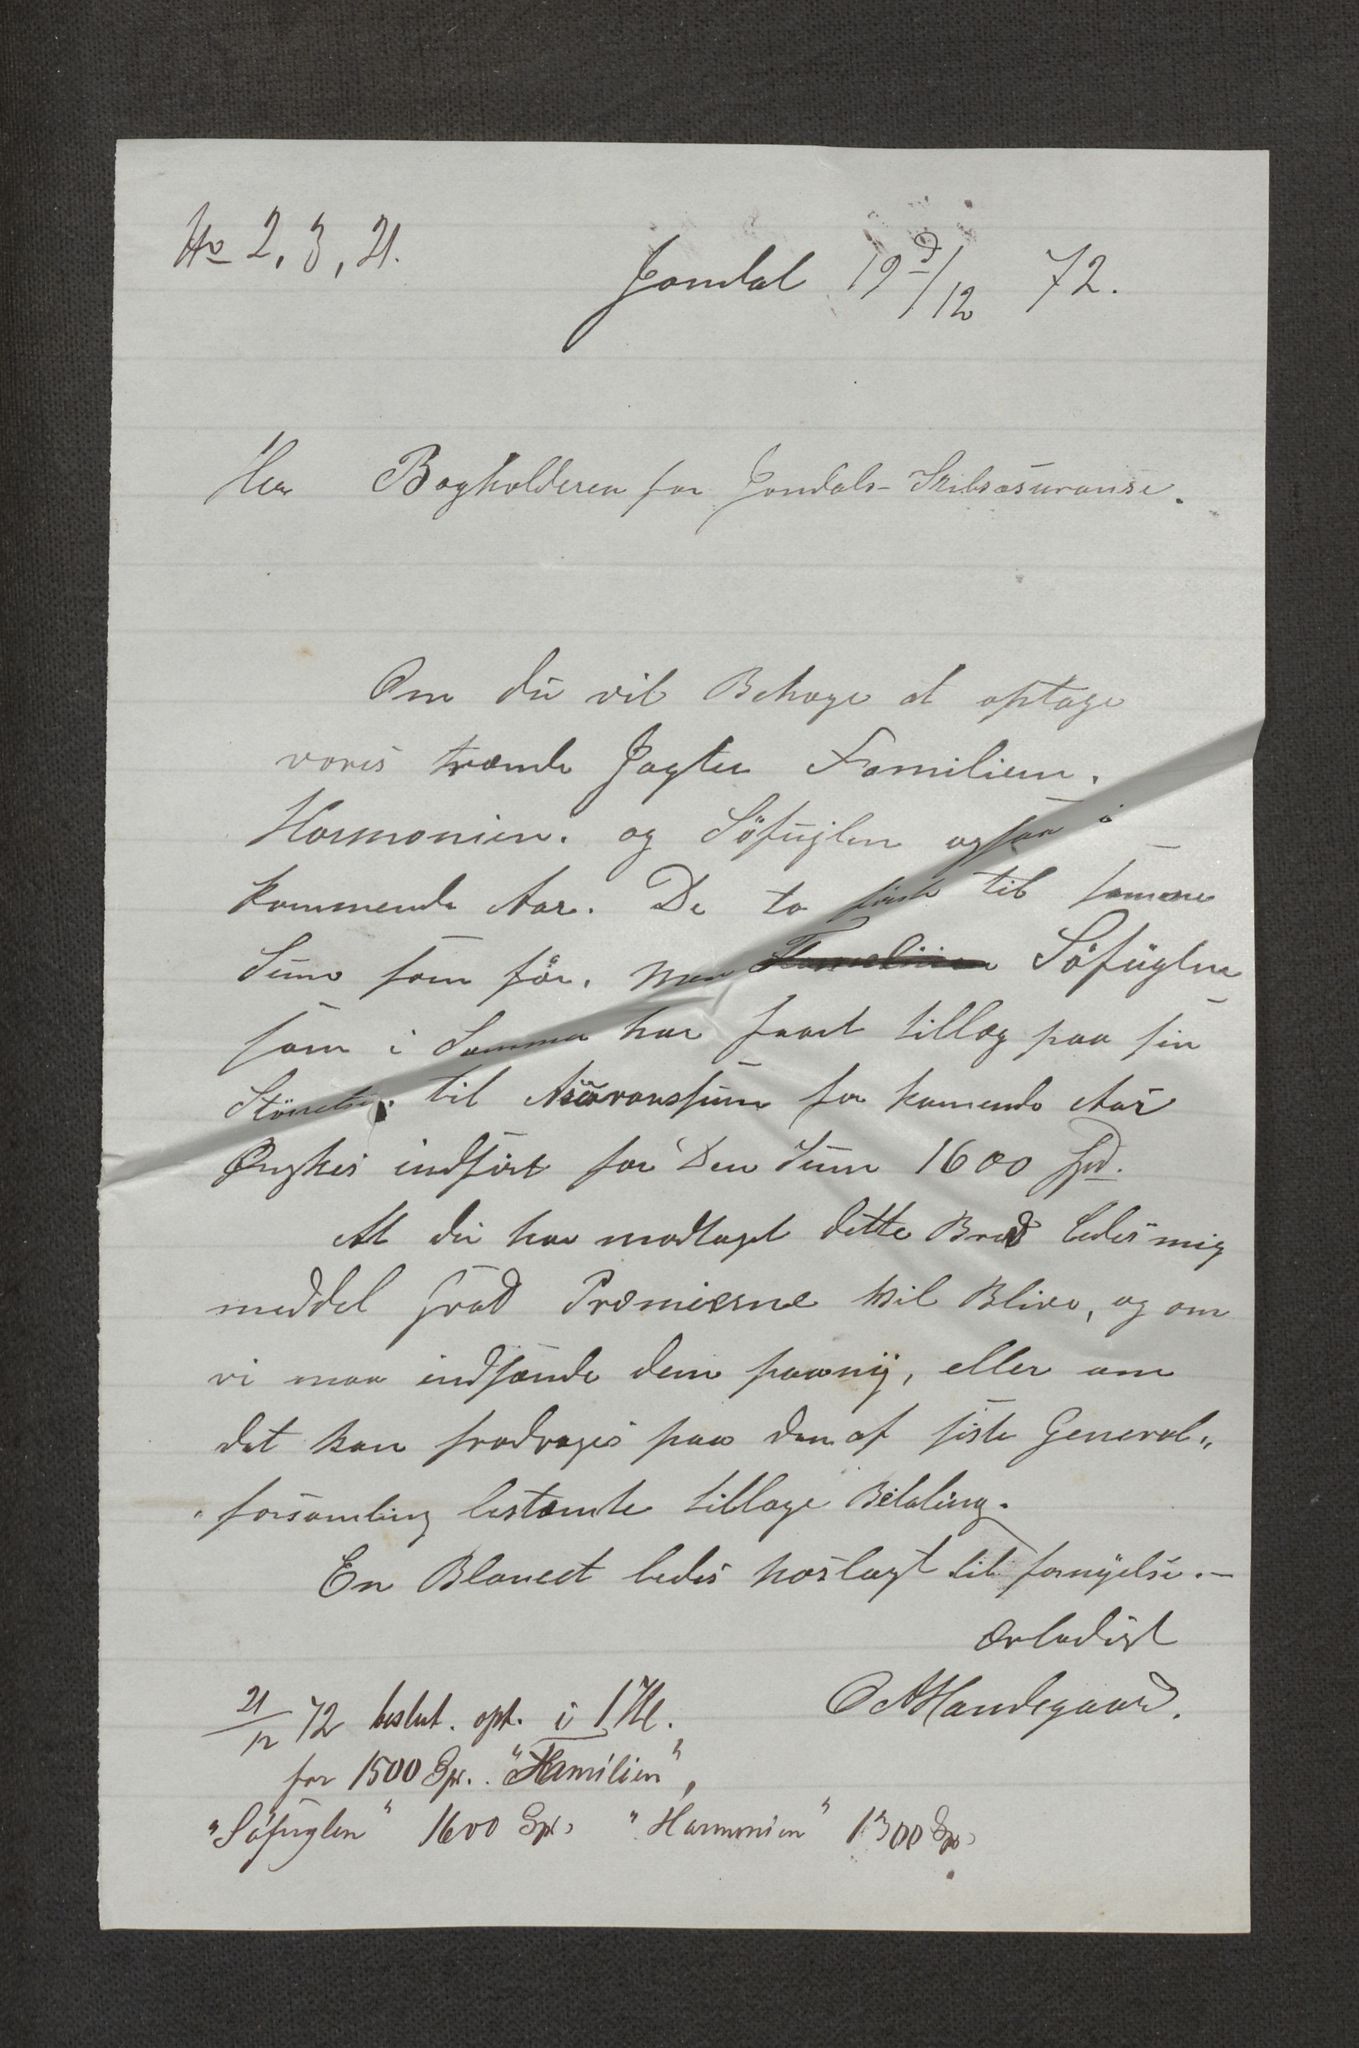 No 2, 3, 21.
Jondal 19d/12 72.
Herr Bogholderen for Jondals Skibsasuranse.
Om du vil Behage at optage
voris trænde Jagter Familien.
Harmonien. og Söfuglen ogsaa i
kommende Aar. De to förste til samme
Sum som för. men Familien Söfuglen
som i Sommer har faaet tillæg paa sin
Större til Asuranssum for komende Aar
Önskes indfört for Den Sum 1600 Spd.
At du har modtaget dette Brev bedes mig
meddel hvad Præmierne vil Blive, og om
vi maa indsænde dem paany, eller om
det kan fradrages paa den af siste General„
„forsamling bestæmte tillage Betaling.
En Blanket bedes hoslagt til fornyelse. —
Ærbødigst
O A Handegaard.
21/12 72 beslut. opt. i 1 Kl.
for 1500 Spd. "Familien",
"Söfuglen" 1600 Spd. "Harmonien" 1300 Spd.